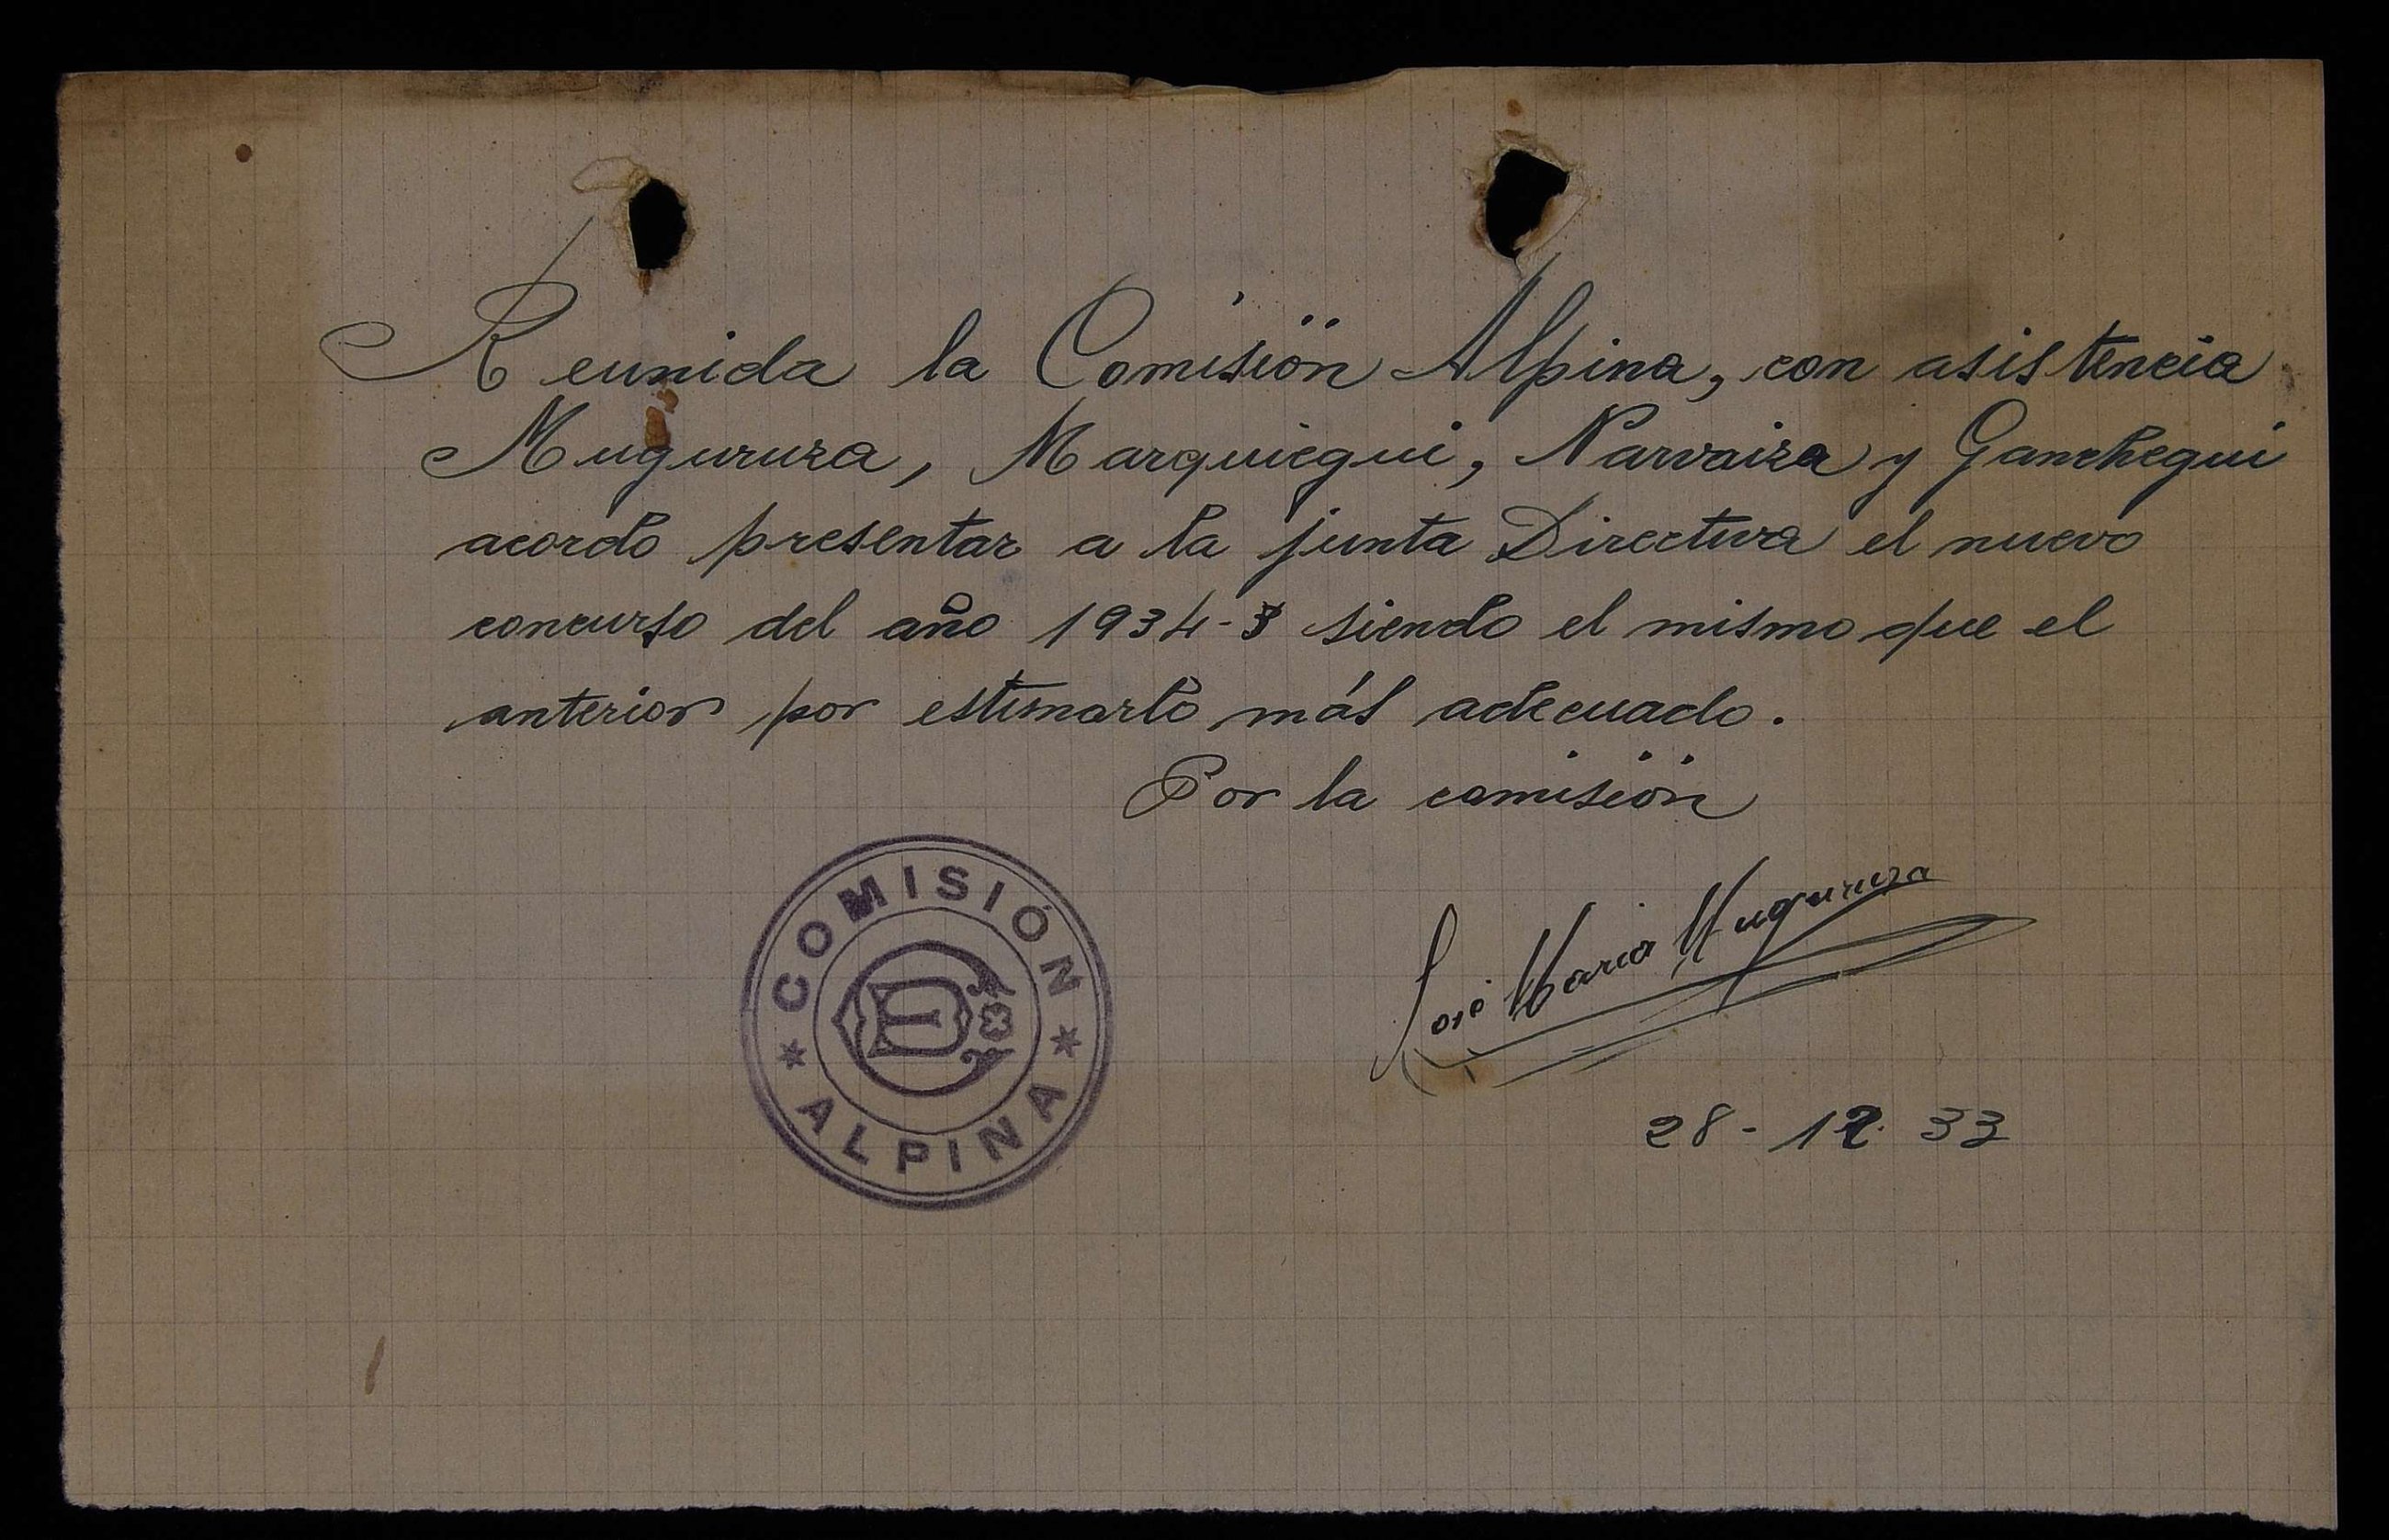 Reunida la Comisión Alpina, con asistencia
Mugururza, Marquiegui, Narvaiza y Ganchegui
acordo presentar a la junta Directiva el nuevo
concurso del año 1934-3 siendo el mismo que el
anterior por estimarlo más adecuado.
Por la comisión
COMISIÓN
ALPINA
José Maria Muguruza
28-12-33